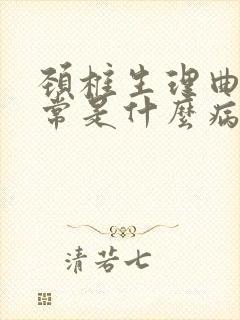 頸椎生理曲
常是什麼病
清若七